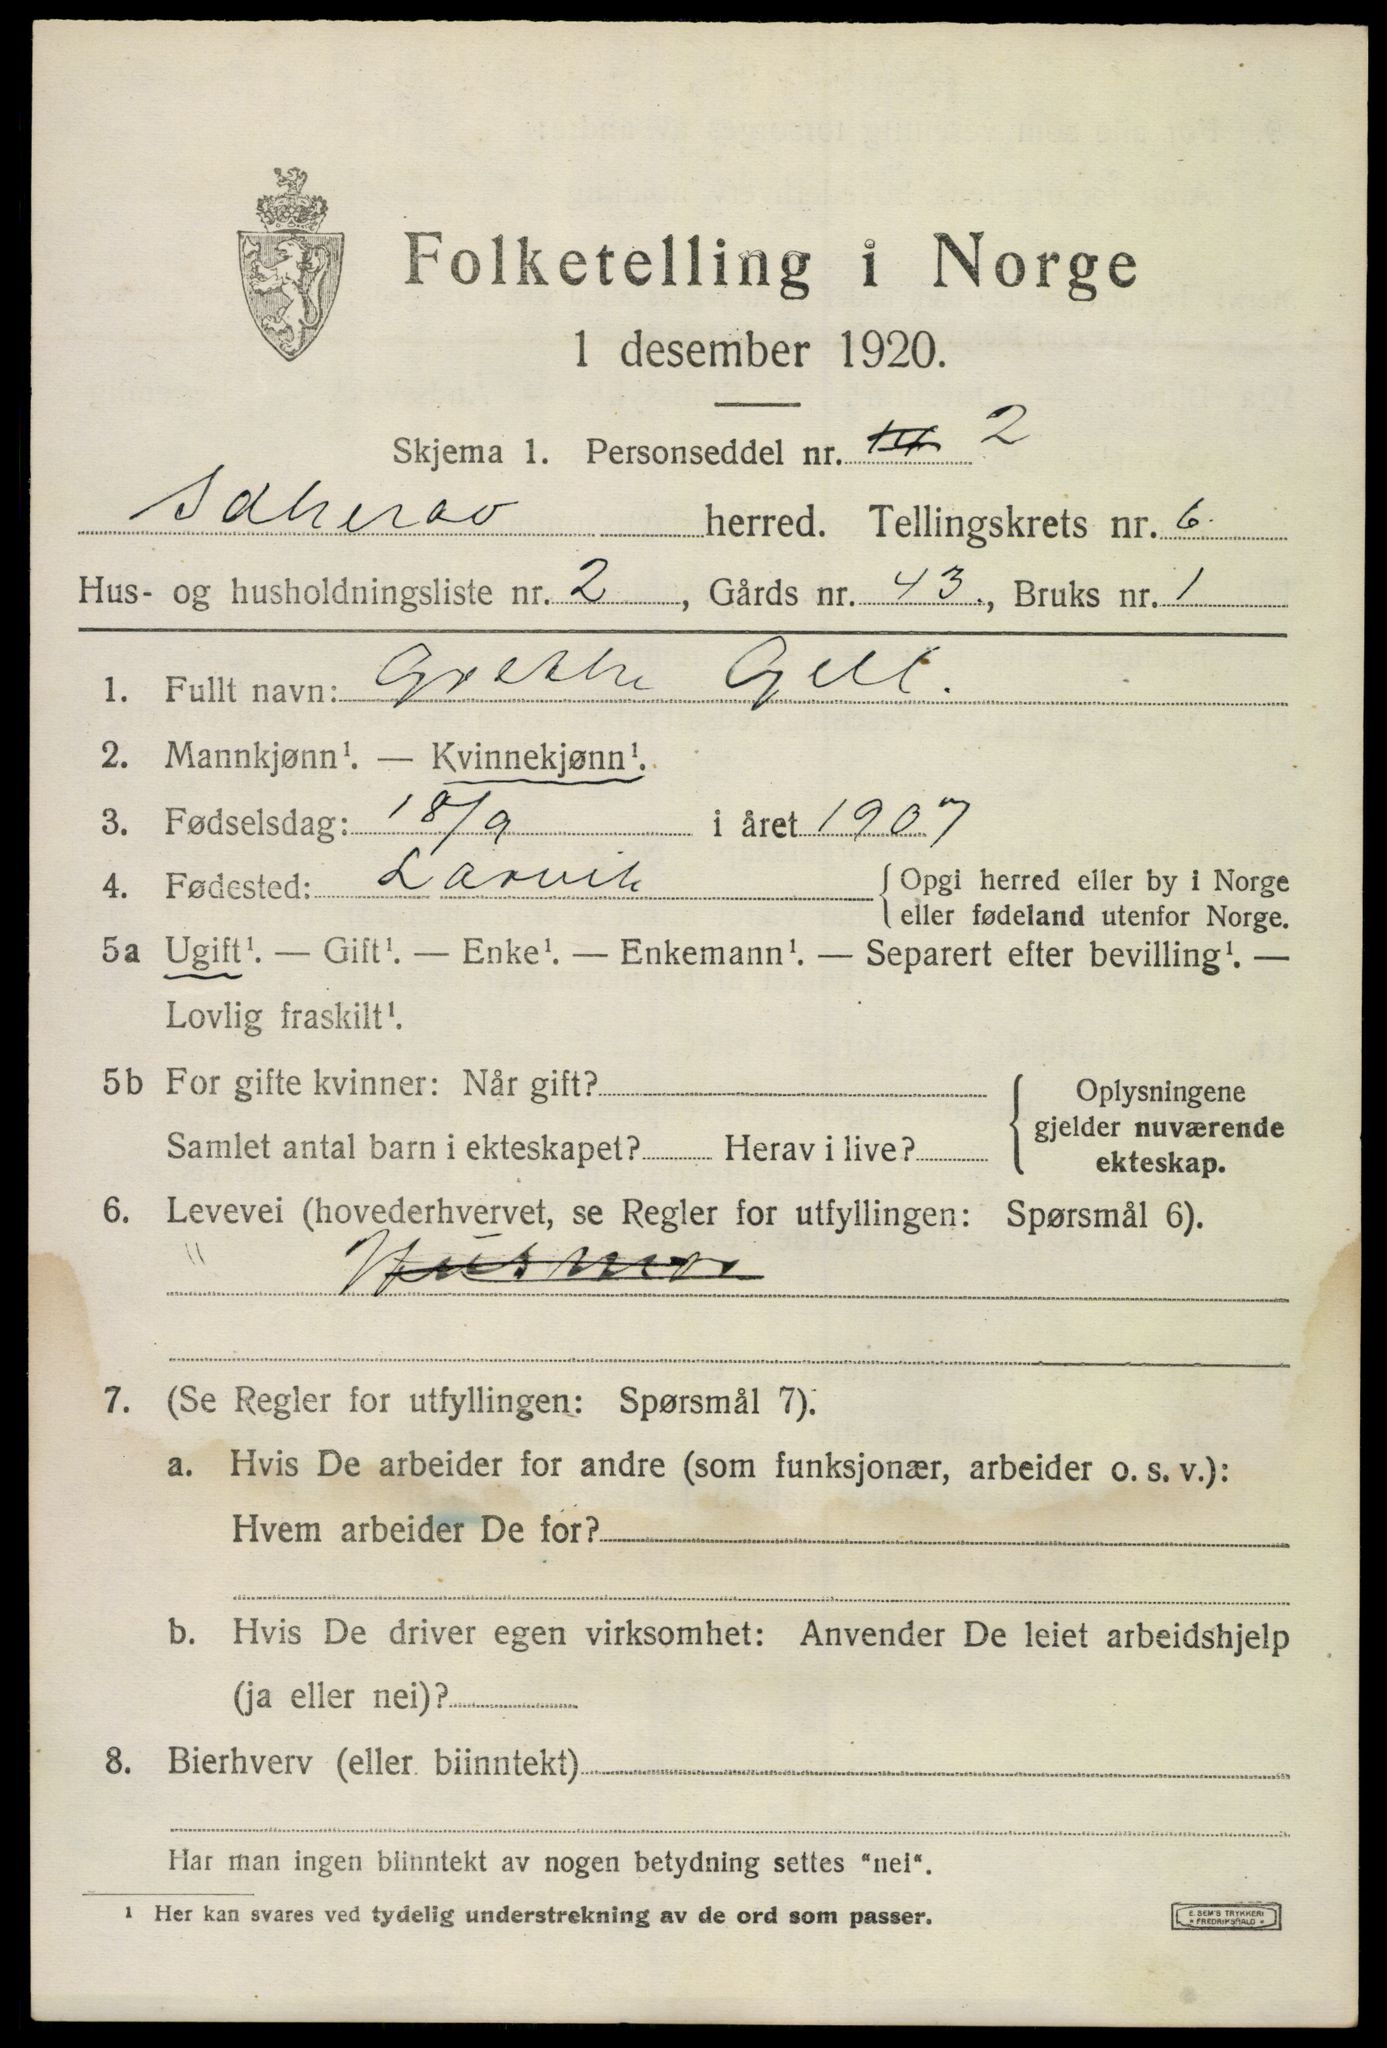 Folketelling i Norge
1 desember 1920.
Skjema 1. Personseddel nr. 2
Idkerød herred. Tellingskrets nr. 6
Hus- og husholdningsliste nr. 2, Gårds nr. 43, Bruks nr. 1
1. Fullt navn: Grethe Gell.
2. Mannkjønn¹. — Kvinnekjønn¹.
3. Fødselsdag: 18/9 i året 1907
4. Fødested: Larvik { Opgi herred eller by i Norge
eller fødeland utenfor Norge.
5a Ugift¹. — Gift¹. — Enke¹. — Enkemann¹. — Separert efter bevilling¹. —
Lovlig fraskilt¹.
5b For gifte kvinner: Når gift?
Samlet antal barn i ekteskapet? Herav i live?
{ Oplysningene
gjelder nuværende
ekteskap.
6. Levevei (hovederhvervet, se Regler for utfyllingen: Spørsmål 6).
" Husmor
7. (Se Regler for utfyllingen: Spørsmål 7).
a. Hvis De arbeider for andre (som funksjonær, arbeider o. s. v.):
Hvem arbeider De for?
b. Hvis De driver egen virksomhet: Anvender De leiet arbeidshjelp
(ja eller nei)?
8. Bierhverv (eller biinntekt)
Har man ingen biinntekt av nogen betydning settes "nei".
¹ Her kan svares ved tydelig understrekning av de ord som passer.
E. SEM'S TRYKKERI
* FREDRIKSHALD *